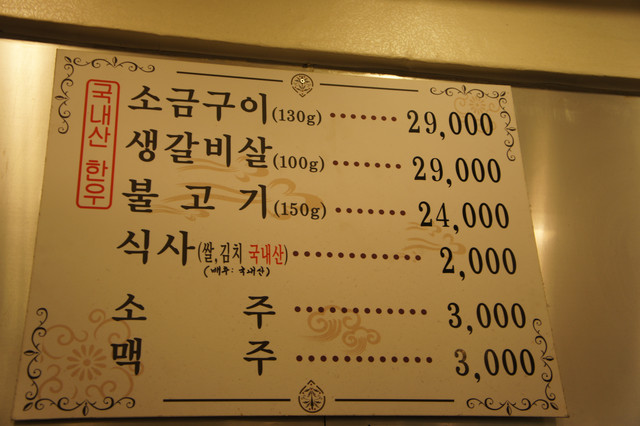 국내산 한우
소금구이(130g) ······· 29,000
생갈비살(100g) ······· 29,000
불고기(150g) ······· 24,000
식사(쌀,김치 국내산) ············· 2,000
(배추: 국내산)
소주 ············· 3,000
맥주 ············· 3,000